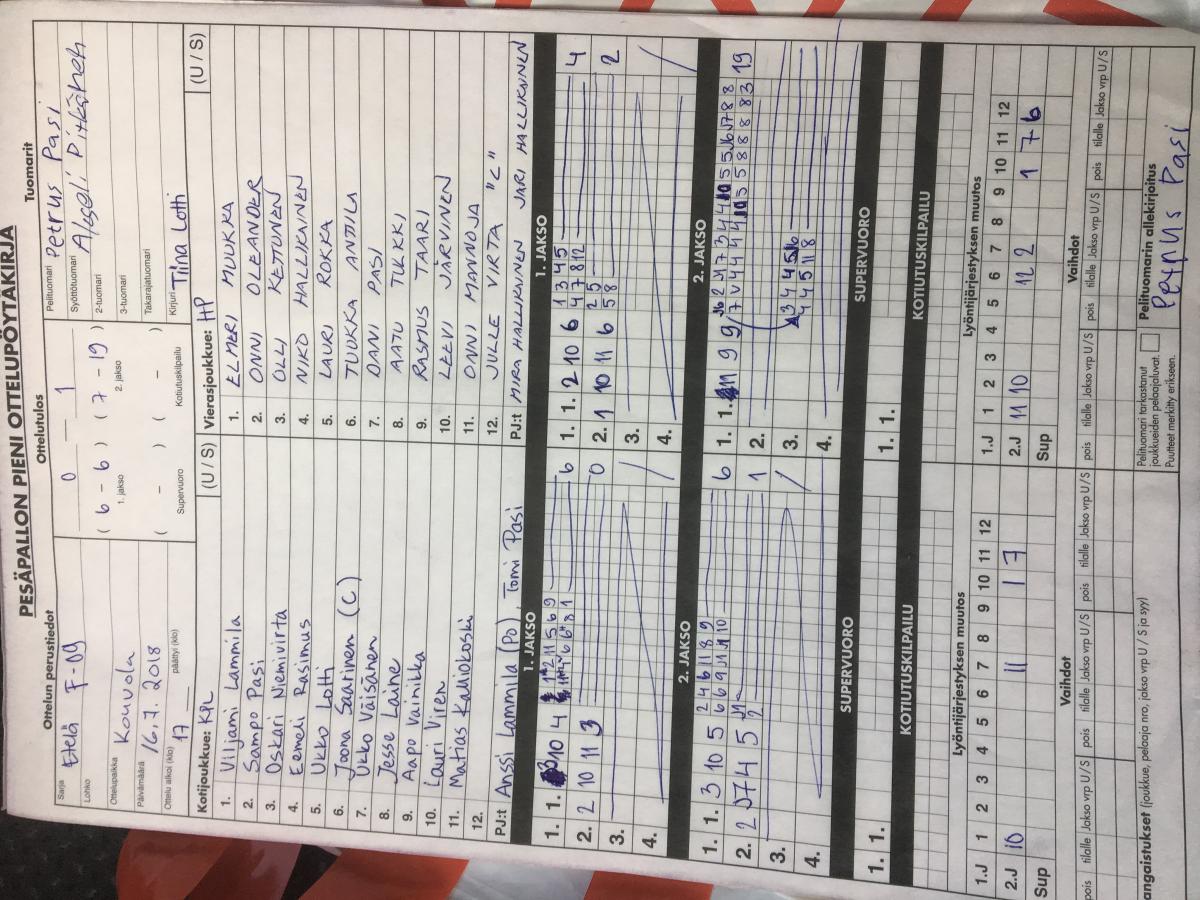 PESÄPALLON PIENI OTTELUPÖYTÄKIRJA
Ottelun perustiedot
Ottelutulos
Tuomarit
Sarja
Etelä F-09
Lohko
Ottelupaikka
Kouvola
Päivämäärä
16.7.2018
Ottelu alkoi (klo)
17
päättyi (klo)
0 1
( 6 - 6 ) ( 7 - 19 )
1. jakso 2. jakso
( - ) ( - )
Supervuoro Kotiutuskilpailu
Pelituomari
Petrus Pasi
Syöttötuomari
Akseli Pitkänen
2-tuomari
3-tuomari
Takarajatuomari
Kirjuri Tiina Lotti
Kotijoukkue: KPL (U / S)
1. Viljami Lammila
2. Sampo Pasi
3. Oskari Niemivirta
4. Eemeli Rasimus
5. Ukko Lotti
6. Joona Saarinen (C)
7. Ukko Väisänen
8. Jesse Laine
9. Aapo Vainikka
10. Lauri Viren
11. Matias Kalliokoski
12.
PJ:t Anssi Lammila (PO), Tomi Pasi
Vierasjoukkue: HP (U / S)
1. ELMERI MUUKKA
2. ONNI OLEANDER
3. OLLI KETTUNEN
4. NIKO HALLIKAINEN
5. LAURI ROKKA
6. TUUKKA ANTTILA
7. DANI PASI
8. AATU TUKKI
9. RASMUS TAARI
10. LEEVI JÄRVINEN
11. ONNI MANNOJA
12. JULLE VIRTA "C"
PJ:t MIRA HALLIKAINEN JARI HALLIKAINEN
1. JAKSO
1. 1. 10 4 6
2. 2 10 11 3 0
3.
4.
1. JAKSO
1. 1. 2 10 6 1 3 4 5 4
4 7 8 12
2. 1 10 11 6 2 5 2
5 8
3.
4.
2. JAKSO
1. 1. 3 10 5 2 4 6 11 8 9 6
2. 7 4 5 1
3.
4.
2. JAKSO
1. 1. 11 9 9 19
2.
3.
4.
SUPERVUORO
1. 1.
SUPERVUORO
1. 1.
KOTIUTUSKILPAILU
KOTIUTUSKILPAILU
Lyöntijärjestyksen muutos
1.J 1 2 3 4 5 6 7 8 9 10 11 12
2.J 10 11 1 7
Sup
Lyöntijärjestyksen muutos
1.J 1 2 3 4 5 6 7 8 9 10 11 12
2.J 11 10 12 2 1 7 6
Sup
Vaihdot
pois tilalle Jakso vrp U / S pois tilalle Jakso vrp U / S pois tilalle Jakso vrp U / S
Vaihdot
pois tilalle Jakso vrp U / S pois tilalle Jakso vrp U / S pois tilalle Jakso vrp U / S
angaistukset (joukkue, pelaaja nro, jakso vrp U / S ja syy)
Pelituomari tarkastanut
joukkueiden pelaajaluvat.
Puutteet merkitty erikseen.
Pelituomarin allekirjoitus
Petrus Pasi